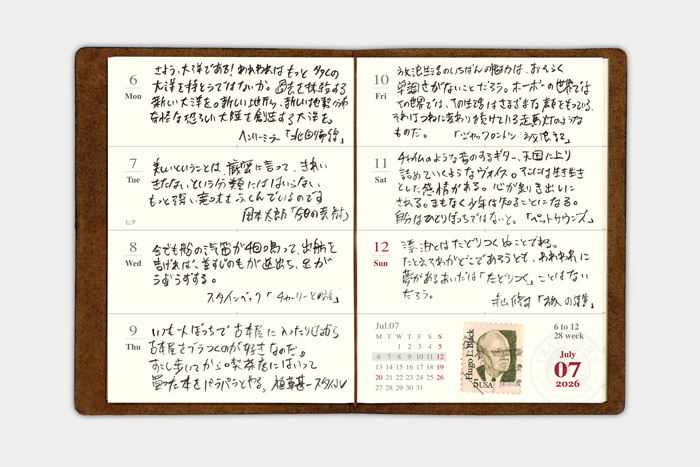 6
Mon
さよう、大洋である!われわれはもっと多くの
大洋を持とうではないか。過去を抹殺する
新しい大洋を。新しい地殻、新しい地質
大陸を創造する大洋を。
ヘンリー・ミラー「北回帰線」
7
Tue
七夕
美しいということは、厳密に言って、きれい
きたないという分類にははいらない、
もっと深い意味をふくんでいるのです
岡本太郎「今日の芸術」
8
Wed
今でも船の汽笛が4回鳴って、出航を
告げれば、首すじのもが逆立ち、足が
うずうずする。
スタインベック「チャーリーとの旅」
9
Thu
いつも一人ぼっちで古本屋に入ったり
古本屋をブラつくのが好きなのだ。
すこし歩いてからの喫茶店にはいって
買った本をパラパラとやる。植草甚一スタイル
10
Fri
放浪生活のいちばんの魅力は、おそらく
単調さがないことだろう。ホーボーの世界では
その生活はさまざまな顔をもっている
それはつねに変わり続けている走馬灯のような
ものだ。「ジャック・ロンドン放浪記」
11
Sat
チャイムのような音のするギター、天国に上り
詰めていくようなヴォイス。そこには生き生き
とした感情がある。心が剥き出しに
される。まもなく少年は知ることになる。
自分はひとりぼっちではないと。「ペット・サウンズ」
12
Sun
たどりつくことである。
たとえそれがどこであろうとも、われわれに
夢があるあいだは「たどりつく」ことはない
だろう。
寺山修司「旅の詩集」
Jul.07
M T W T F S S
1 2 3 4 5
6 7 8 9 10 11 12
13 14 15 16 17 18 19
20 21 22 23 24 25 26
27 28 29 30 31
Hugo L. Black
5 USA
6 to 12
28 week
July
07
2026